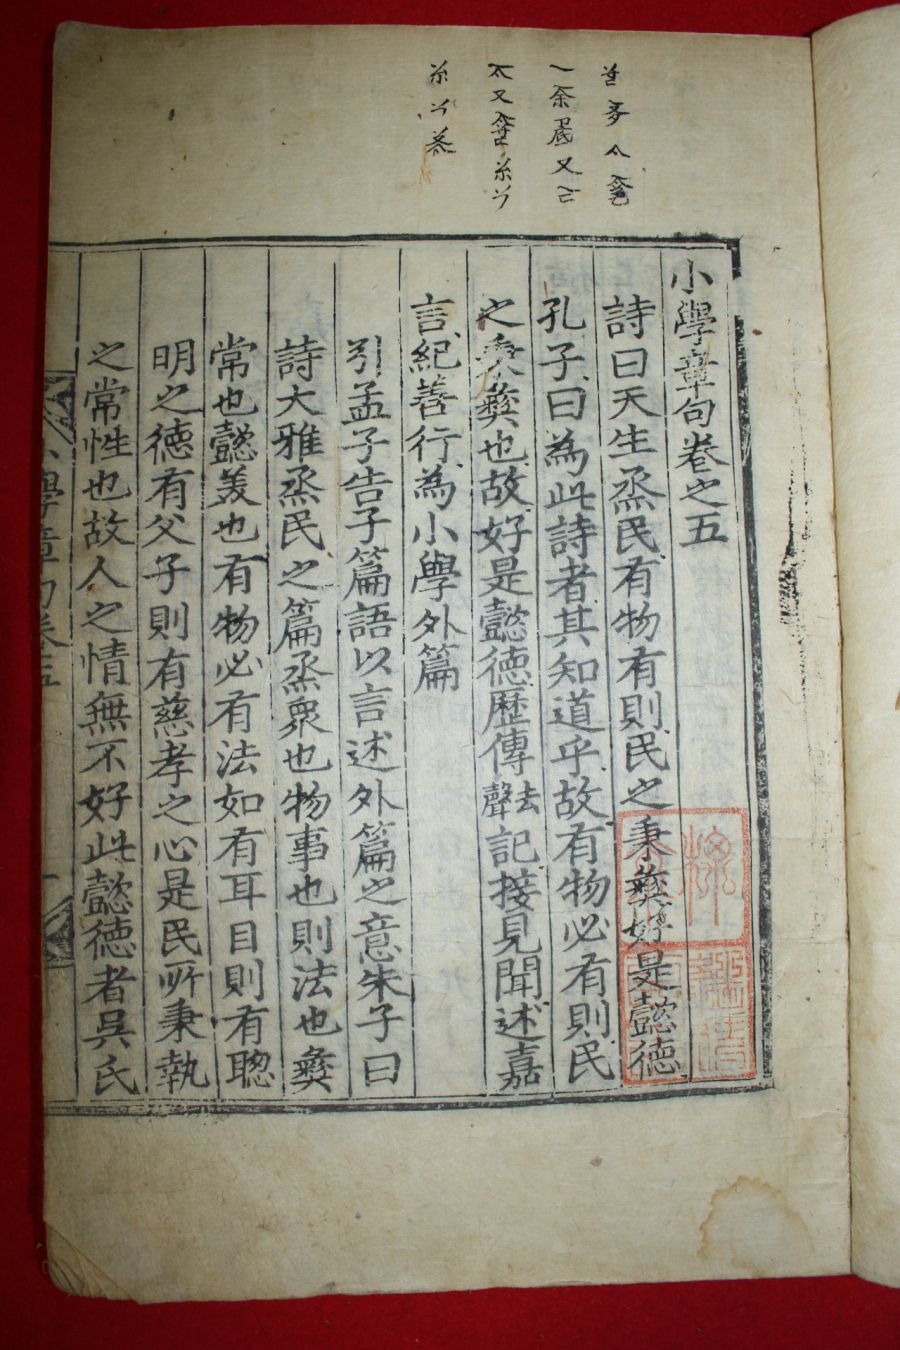 小學章句卷之五
詩曰天生烝民有物有則民之秉彝好是懿德
孔子曰為此詩者其知道乎故有物必有則民
之秉彝也故好是懿德歷傳聲法記接見聞述嘉
言紀善行為小學外篇
引孟子告子篇語以言述外篇之意朱子曰
詩大雅烝民之篇烝衆也物事也則法也彝
常也懿美也有物必有法如有耳目則有聰
明之德有父子則有慈孝之心是民所秉執
之常性也故人之情無不好此懿德者吳氏
小學章句卷五